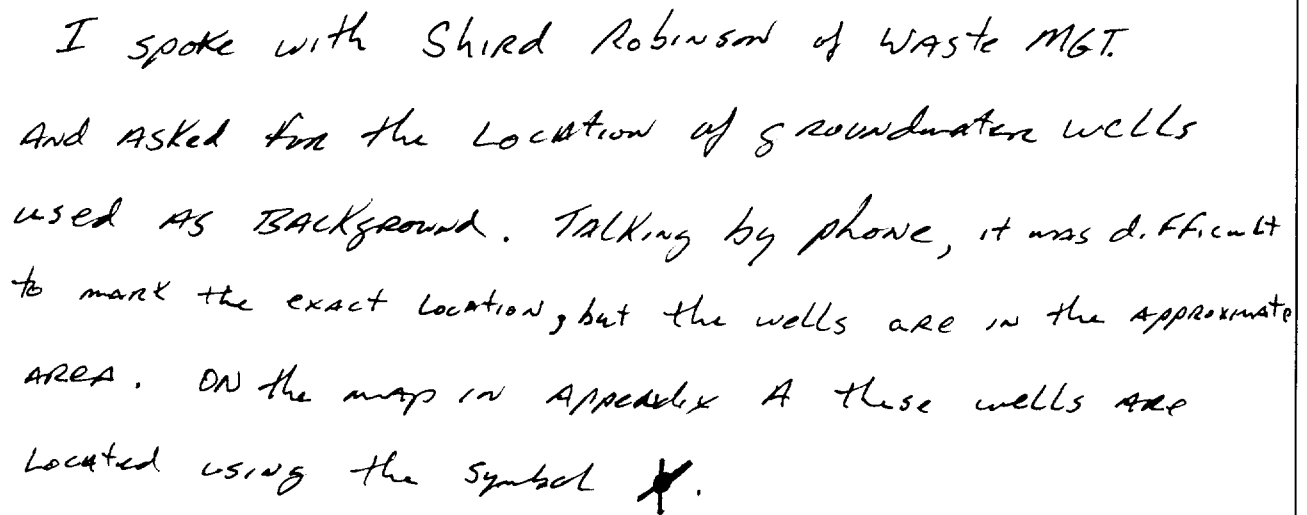 I spoke with Shird Robinson of Waste MGT.
And asked for the Location of groundwater wells
used as Background. Talking by phone, it was difficult
to mark the exact Location, but the wells are in the approximate
area. On the map in Appendix A these wells are
Located using the symbol .